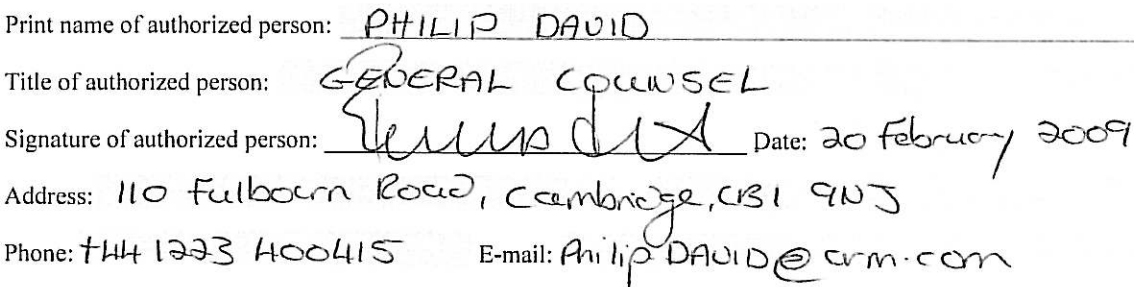 Print name of authorized person: PHILIP DAVID
Title of authorized person: GENERAL COUNSEL
Signature of authorized person: Date: 20 February 2009
Address: 110 Fulbourn Road, Cambridge, CB1 9NJ
Phone: +44 1223 400415 E-mail: Philip DAVID@arm.com